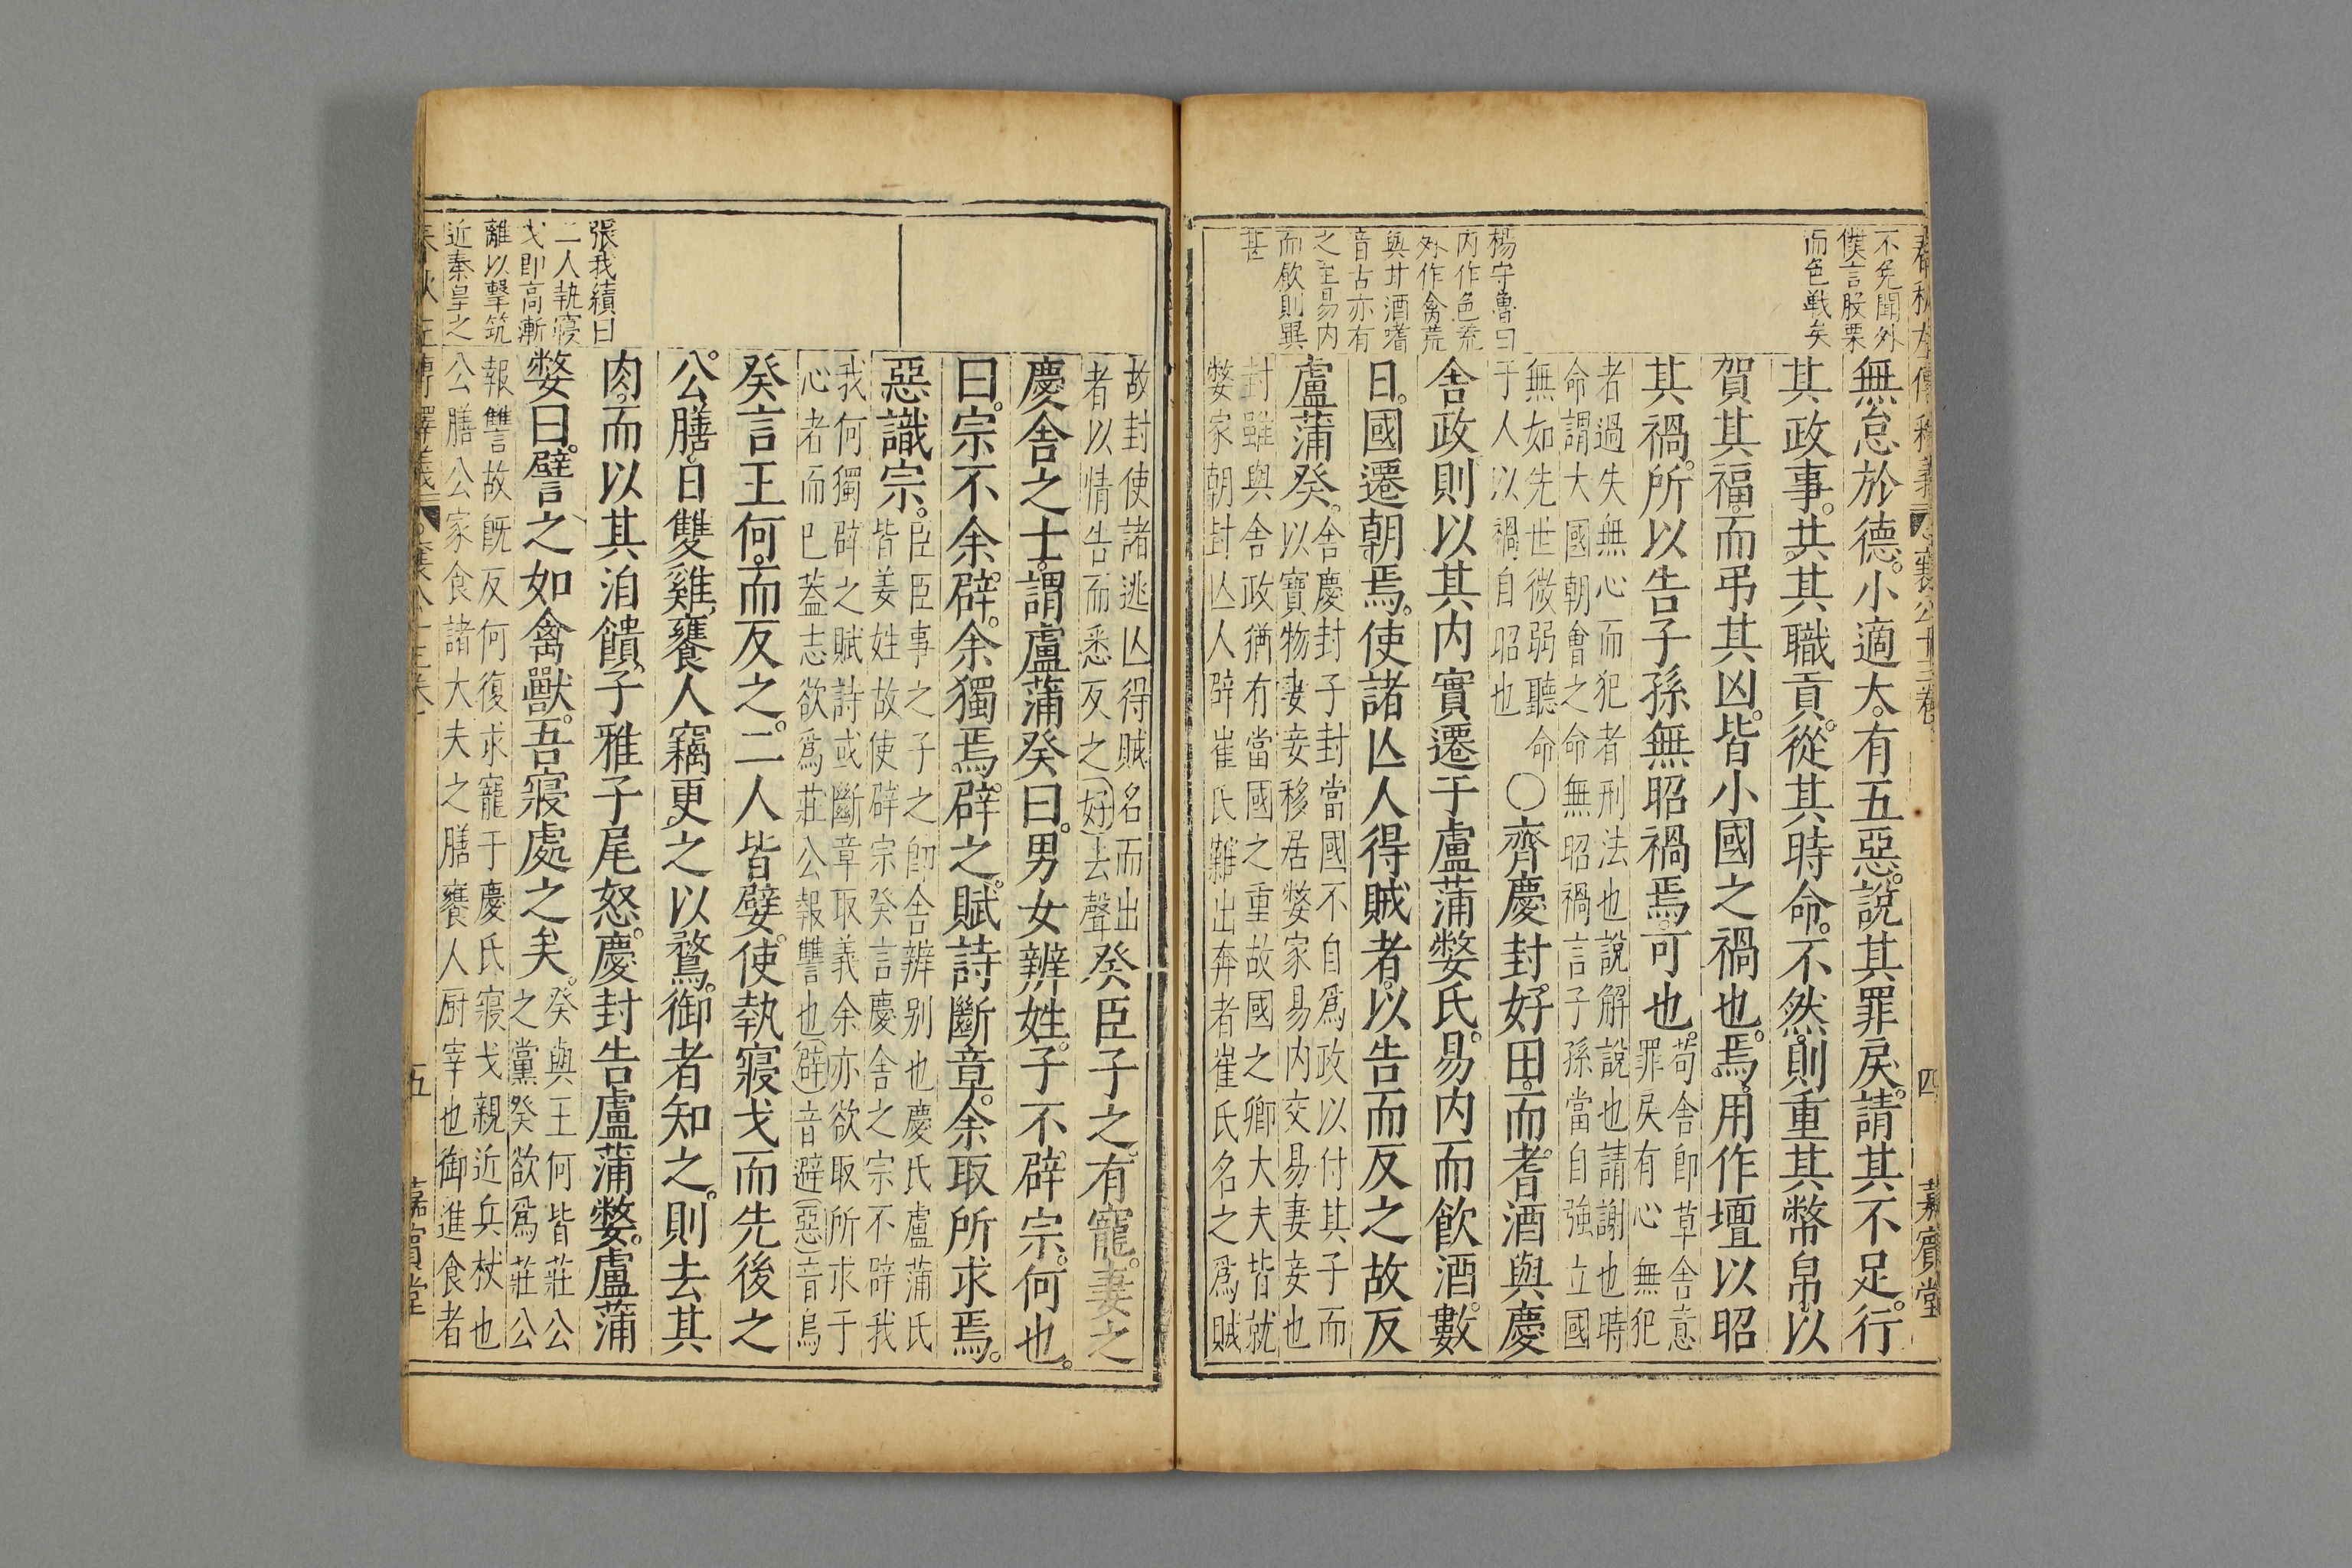 春秋左傳釋義 襄公十三卷 四 嘉賓堂
不免聞外
僕言股栗
而色戰矣
楊守魯曰
内作色荒
外作禽荒
與甘酒嗜
音古亦有
之至易内
而飲則異
甚
無怠於德。小適大。有五惡。說其罪戾。請其不足。行
其政事。共其職貢。從其時命。不然。則重其幣帛。以
賀其福。而弔其凶。皆小國之禍也。焉。用作壇以昭
其禍。所以告子孫無昭禍焉。可也。
苟舍卽草舍意
罪戾有心無犯
者過失無心而犯者刑法也說解說也請謝也時
命謂大國朝會之命無昭禍言子孫當自強立國
無如先世微弱聽命
于人以禍自昭也
○齊慶封。好田。而耆酒與慶
舍政則以其内實遷于盧蒲嫳氏。易内而飲酒。數
日。國遷朝焉。使諸亾人得賊者。以告而反之故反
盧蒲癸。
舍慶封子封當國不自爲政以付其子而
以寶物妻妾移居嫳家易内交易妻妾也
封雖與舍政猶有當國之重故國之卿大夫皆就
嫳家朝封亾人辟崔氏難出奔者崔氏名之爲賊
故封使諸逃亾得賊名而出
者以情告而悉反之(好)去聲
癸臣子之。有寵。妻之
慶舍之士。謂盧蒲癸曰。男女辨姓。子不辟宗。何也。
曰。宗不余辟。余獨焉。辟之。賦詩斷章。余取所求焉。
惡識宗。
臣臣事之子之卽舍辨别也慶氏盧蒲氏
皆姜姓故使辟宗癸言慶舍之宗不辟我
我何獨辟之賦詩或斷章取義余亦欲取所求于
心者而已蓋志欲爲莊公報讐也(辟)音避(惡)音烏
癸言王何。而反之。二人皆嬖。使執寢戈而先後之
公膳。日雙雞。饔人竊更之以鶩。御者知之。則去其
肉。而以其洎饋。子雅子尾怒。慶封告盧蒲嫳。盧蒲
嫳曰。譬之如禽獸。吾寢處之矣。
癸與王何皆莊公
之黨癸欲爲莊公
報讐故旣反何復求寵于慶氏寢戈親近兵杖也
公膳公家食諸大夫之膳饔人厨宰也御進食者
張我續曰
二人執寢
戈即高漸
離以擊筑
近秦皇之
五 嘉賓堂